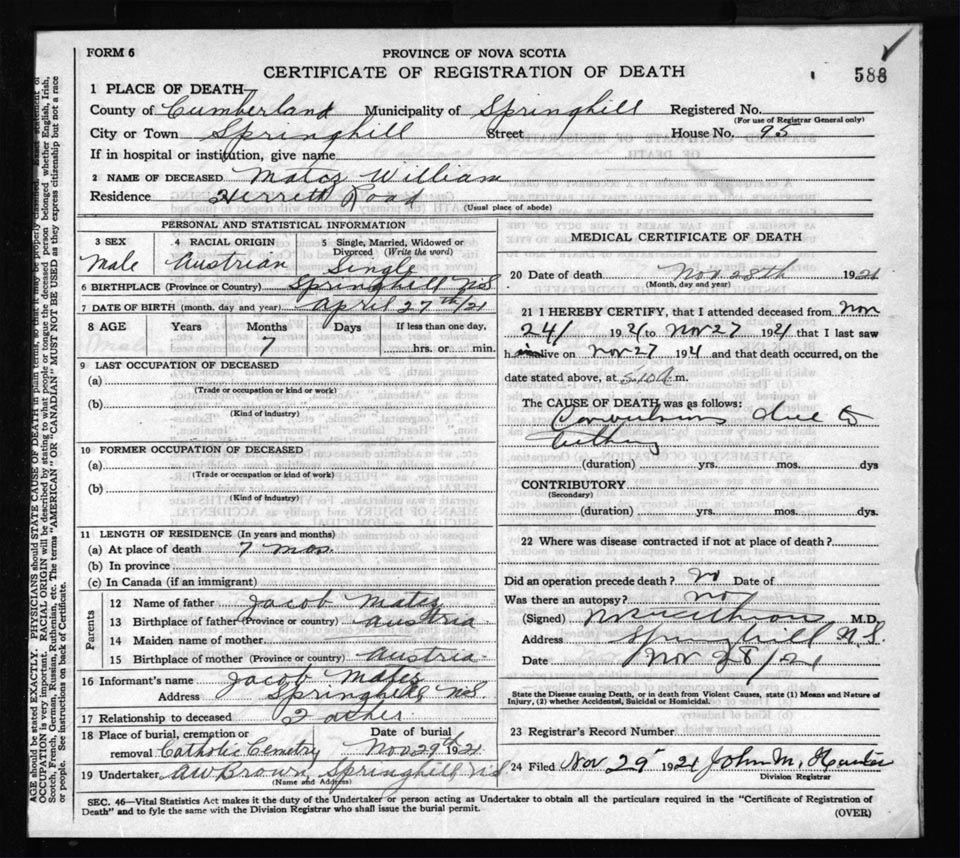 FORM 6
PROVINCE OF NOVA SCOTIA
CERTIFICATE OF REGISTRATION OF DEATH
588
1 PLACE OF DEATH
County of Cumberland Municipality of Springhill Registered No.
(For use of Registrar General only)
City or Town Springhill Street House No. 95
If in hospital or institution, give name
2 NAME OF DECEASED Matcz William
Residence Herrett Road
(Usual place of abode)
PERSONAL AND STATISTICAL INFORMATION
3 SEX 4 RACIAL ORIGIN 5 Single, Married, Widowed or Divorced (Write the word)
Male Austrian Single
6 BIRTHPLACE (Province or Country) Springhill NS
7 DATE OF BIRTH (month, day and year) April 27th/21
8 AGE Years Months Days If less than one day,
7 hrs. or min.
9 LAST OCCUPATION OF DECEASED
(a)
(Trade or occupation or kind or work)
(b)
(Kind of industry)
10 FORMER OCCUPATION OF DECEASED
(a)
(Trade or occupation or kind or work)
(b)
(Kind of industry)
11 LENGTH OF RESIDENCE (In years and months)
(a) At place of death 7 mos.
(b) In province
(c) In Canada (if an immigrant)
Parents
12 Name of father Jacob Matcz
13 Birthplace of father (Province or country) Austria
14 Maiden name of mother
15 Birthplace of mother (Province or country) Austria
16 Informant's name Jacob
Address Springhill, NS
17 Relationship to deceased Father
18 Place of burial, cremation or Date of burial
removal Catholic Cemetry Nov 29th 1921
19 Undertaker AW Brown, Springhill NS
(Name and Address)
MEDICAL CERTIFICATE OF DEATH
20 Date of death Nov 28th 1921
(Month, day and year)
21 I HEREBY CERTIFY, that I attended deceased from Nov
24/ 1921 to Nov 27 1921 that I last saw
h im alive on Nov 27 1921 and that death occurred, on the
date stated above, at 5.10 A m.
The CAUSE OF DEATH was as follows:
Convulsions due to
teething
(duration) yrs. mos. dys
CONTRIBUTORY
(Secondary)
(duration) yrs. mos. dys.
22 Where was disease contracted if not at place of death?
Did an operation precede death? no Date of
Was there an autopsy? no
(Signed) M.D.
Address Springhill N.S.
Date Nov 28/21
State the Disease causing Death, or in death from Violent Causes, state (1) Means and Nature of
Injury, (2) whether Accidental, Suicidal or Homicidal.
23 Registrar's Record Number
24 Filed Nov 29 1921 John M. Hunter
Division Registrar
SEC. 46—Vital Statistics Act makes it the duty of the Undertaker or person acting as Undertaker to obtain all the particulars required in the "Certificate of Registration of
Death" and to fyle the same with the Division Registrar who shall issue the burial permit.
(OVER)